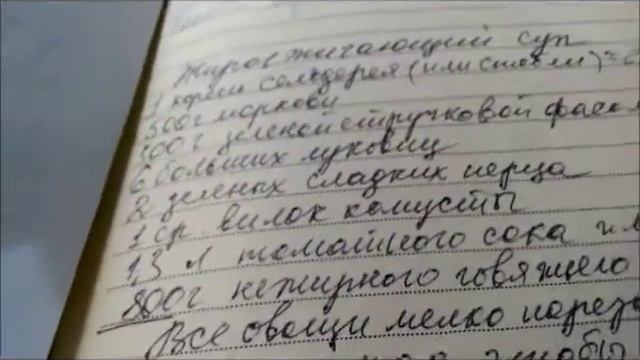 Жиросжигающий суп
1 корень сельдерея (или стебли)
500г моркови
500г зеленой стручковой фасо
6 больших луковиц
2 зеленых сладких перца
1 ср. вилок капусты
1,5 л томатного сока и
800г нежирного говяжьего
Все овощи мелко пореза
чтобы